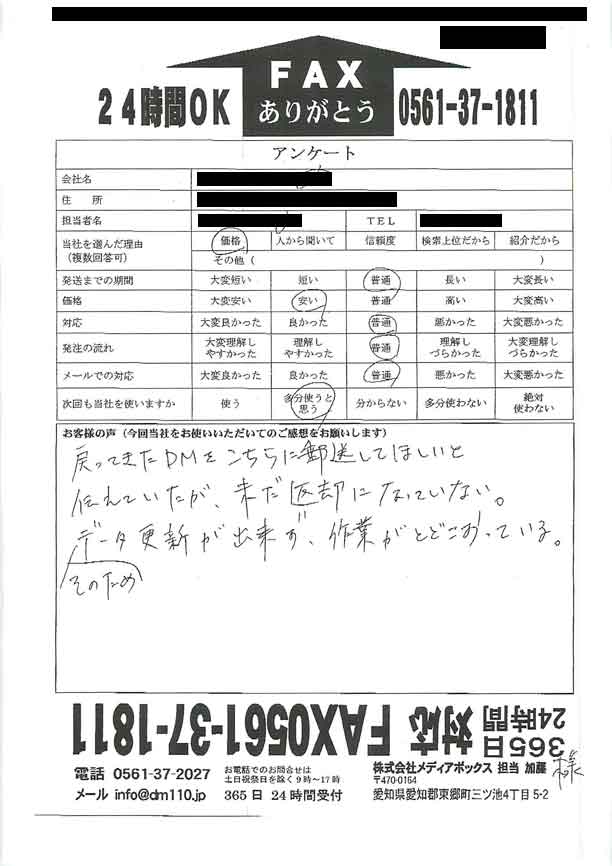 FAX
ありがとう
24時間OK
0561-37-1811
アンケート
会社名
住　所
担当者名　ＴＥＬ
当社を選んだ理由（複数回答可）　価格　人から聞いて　信頼度　検索上位だから　紹介だから
その他（　）
発送までの期間　大変短い　短い　普通　長い　大変長い
価格　大変安い　安い　普通　高い　大変高い
対応　大変良かった　良かった　普通　悪かった　大変悪かった
発注の流れ　大変理解しやすかった　理解しやすかった　普通　理解しづらかった　大変理解しづらかった
メールでの対応　大変良かった　良かった　普通　悪かった　大変悪かった
次回も当社を使いますか　使う　多分使うと思う　分からない　多分使わない　絶対使わない
お客様の声（今回当社をお使いいただいてのご感想をお願いします）
戻ってきたDMをこちらに郵送してほしいと
伝えていたが、未だ返却になっていない。
データ更新が出来ず、作業がとどこおっている。
そのため
365日
24時間
対応 FAX0561-37-1811
電話 0561-37-2027
お電話でのお問合せは
土日祝祭日を除く9時～17時
メール info@dm110.jp
365日 24時間受付
株式会社メディアボックス 担当 加藤 様
〒470-0164
愛知県愛知郡東郷町三ツ池4丁目5-2